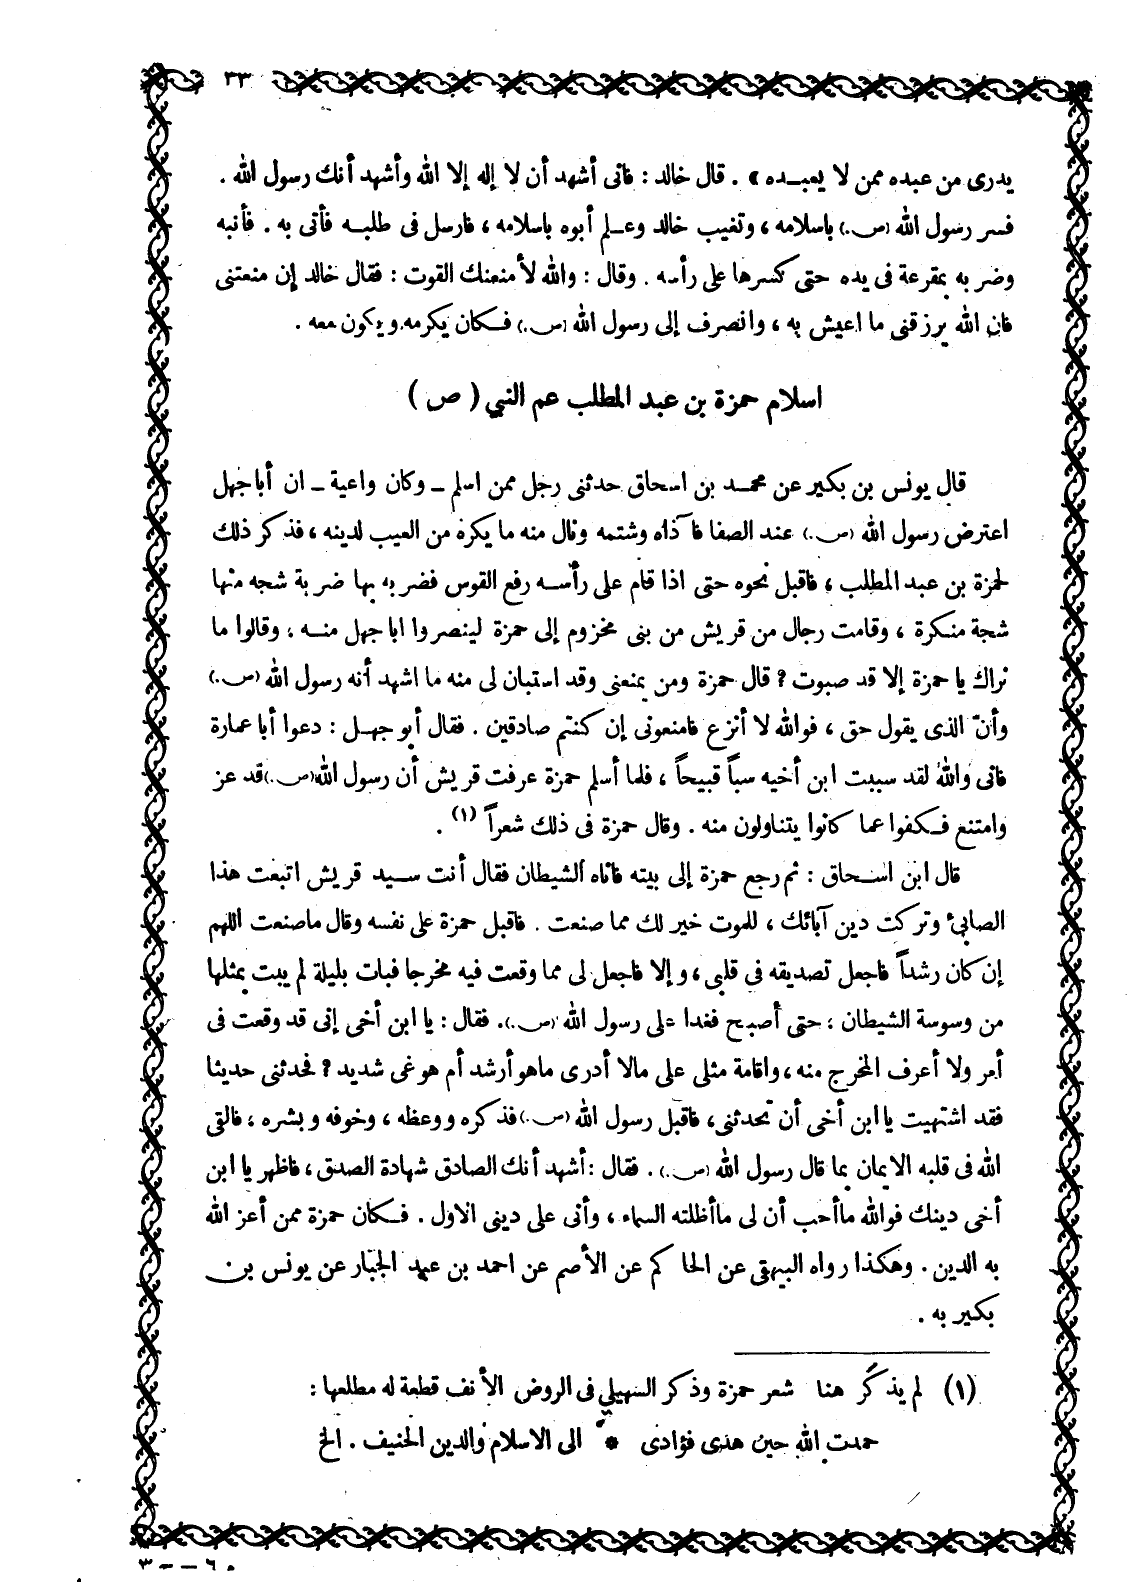 ٣٣
يدرى من عبده ممن لا يعبــده » . قال خالد : فانى أشهد أن لا إله إلا الله وأشهد أنك رسول الله .
فسر رسول الله (ص.) باسلامه ، وتغيب خالد وعـلم أبوه باسلامه ، فارسل فى طلبــه فأتى به . فأنبه
وضربه بمقرعة فى يده حتى كسرها على رأسه . وقال : والله لأمنعنك القوت : فقال خالد إن منعتنى
فان الله يرزقنى ما اعيش به ، وانصرف إلى رسول الله (ص.) فـكان يكرمه ويكون معه .
اسلام حمزة بن عبد المطلب عم النبي ( ص )
قال يونس بن بكير عن محمــد بن اسحاق حدثنى رجل ممن اسلم ـ وكان واعية ـ ان أباجهل
اعترض رسول الله (ص.) عند الصفا فآذاه وشتمه ونال منه ما يكره من العيب لدينه ، فذكر ذلك
لحمزة بن عبد المطلب ، فاقبل نحوه حتى اذا قام على رأســه رفع القوس فضربه بها ضربة شجه منها
شجة منـكرة ، وقامت رجال من قريش من بنى مخزوم إلى حمزة لينصروا اباجهل منــه ، وقالوا ما
نراك يا حمزة إلا قد صبوت ؟ قال حمزة ومن يمنعنى وقد استبان لى منه ما اشهد أنه رسول الله (ص.)
وأنّ الذى يقول حق ، فوالله لا أنزع فامنعونى إن كنتم صادقين . فقال أبو جهـل : دعوا أبا عمارة
فانى والله لقد سببت ابن أخيه سباً قبيحاً ، فلما أسلم حمزة عرفت قريش أن رسول الله (ص.) قد عز
وامتنع فـكفوا عما كانوا يتناولون منه . وقال حمزة فى ذلك شعراً (١) .
قال ابن اســحاق : ثم رجع حمزة إلى بيته فاتاه الشيطان فقال أنت سـيد قريش اتبعت هذا
الصابئ وتركت دين آبائك ، للموت خير لك مما صنعت . فاقبل حمزة على نفسه وقال ماصنعت اللهم
إن كان رشداً فاجعل تصديقه فى قلبى ، وإلا فاجعل لى مما وقعت فيه مخرجا فبات بليلة لم يبت بمثلها
من وسوسة الشيطان ، حتى أصبح فغدا على رسول الله (ص.). فقال : يا ابن أخى إنى قد وقعت فى
أمر ولا أعرف المخرج منه ، واقامة مثلى على مالا أدرى ماهو أرشد أم هو غى شديد ؟ فحدثنى حديثا
فقد اشتهيت يا ابن أخى أن تحدثنى ، فاقبل رسول الله (ص.) فذكره ووعظه ، وخوفه وبشره ، فالقى
الله فى قلبه الايمان بما قال رسول الله (ص.) . فقال : أشهد أنك الصادق شهادة الصدق ، فاظهر يا ابن
أخى دينك فوالله ماأحب أن لى ماأظلته السماء ، وأنى على دينى الاول . فـكان حمزة ممن أعز الله
به الدين . وهكذا رواه البيهقى عن الحاكم عن الأصم عن احمد بن عبد الجبار عن يونس بن
بكير به .
(١) لم يذكر هنا شعر حمزة وذكر السهيلي فى الروض الأنف قطعة له مطلعها :
حمدت الله حين هدى فؤادى * الى الاسلام والدين الحنيف . الخ
٣ - - ٦ .